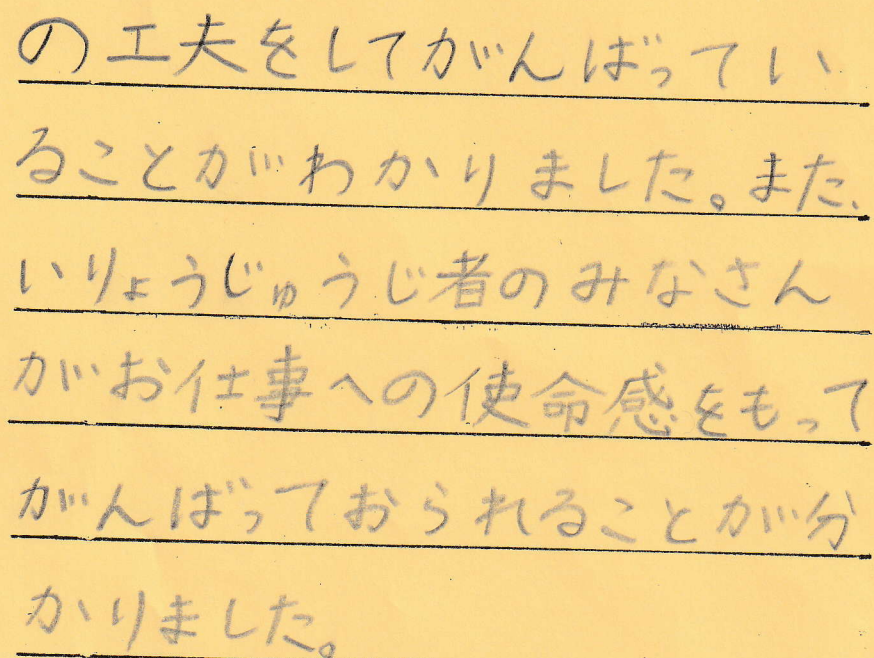 の工夫をしてがんばってい
ることがわかりました。また、
いりょうじゅうじ者のみなさん
がお仕事への使命感をもって
がんばっておられることが分
かりました。